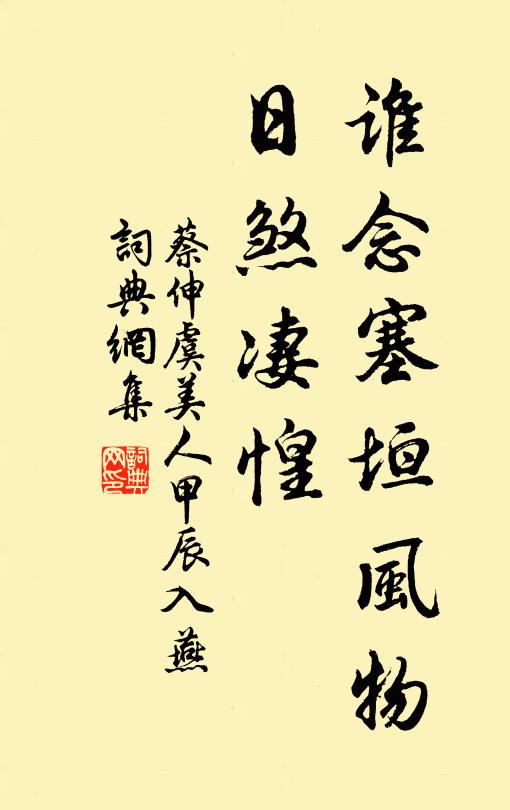 誰念塞垣風物
日煞凄惶
蔡伸虞美人甲辰入燕
詞典網集
詞典網印